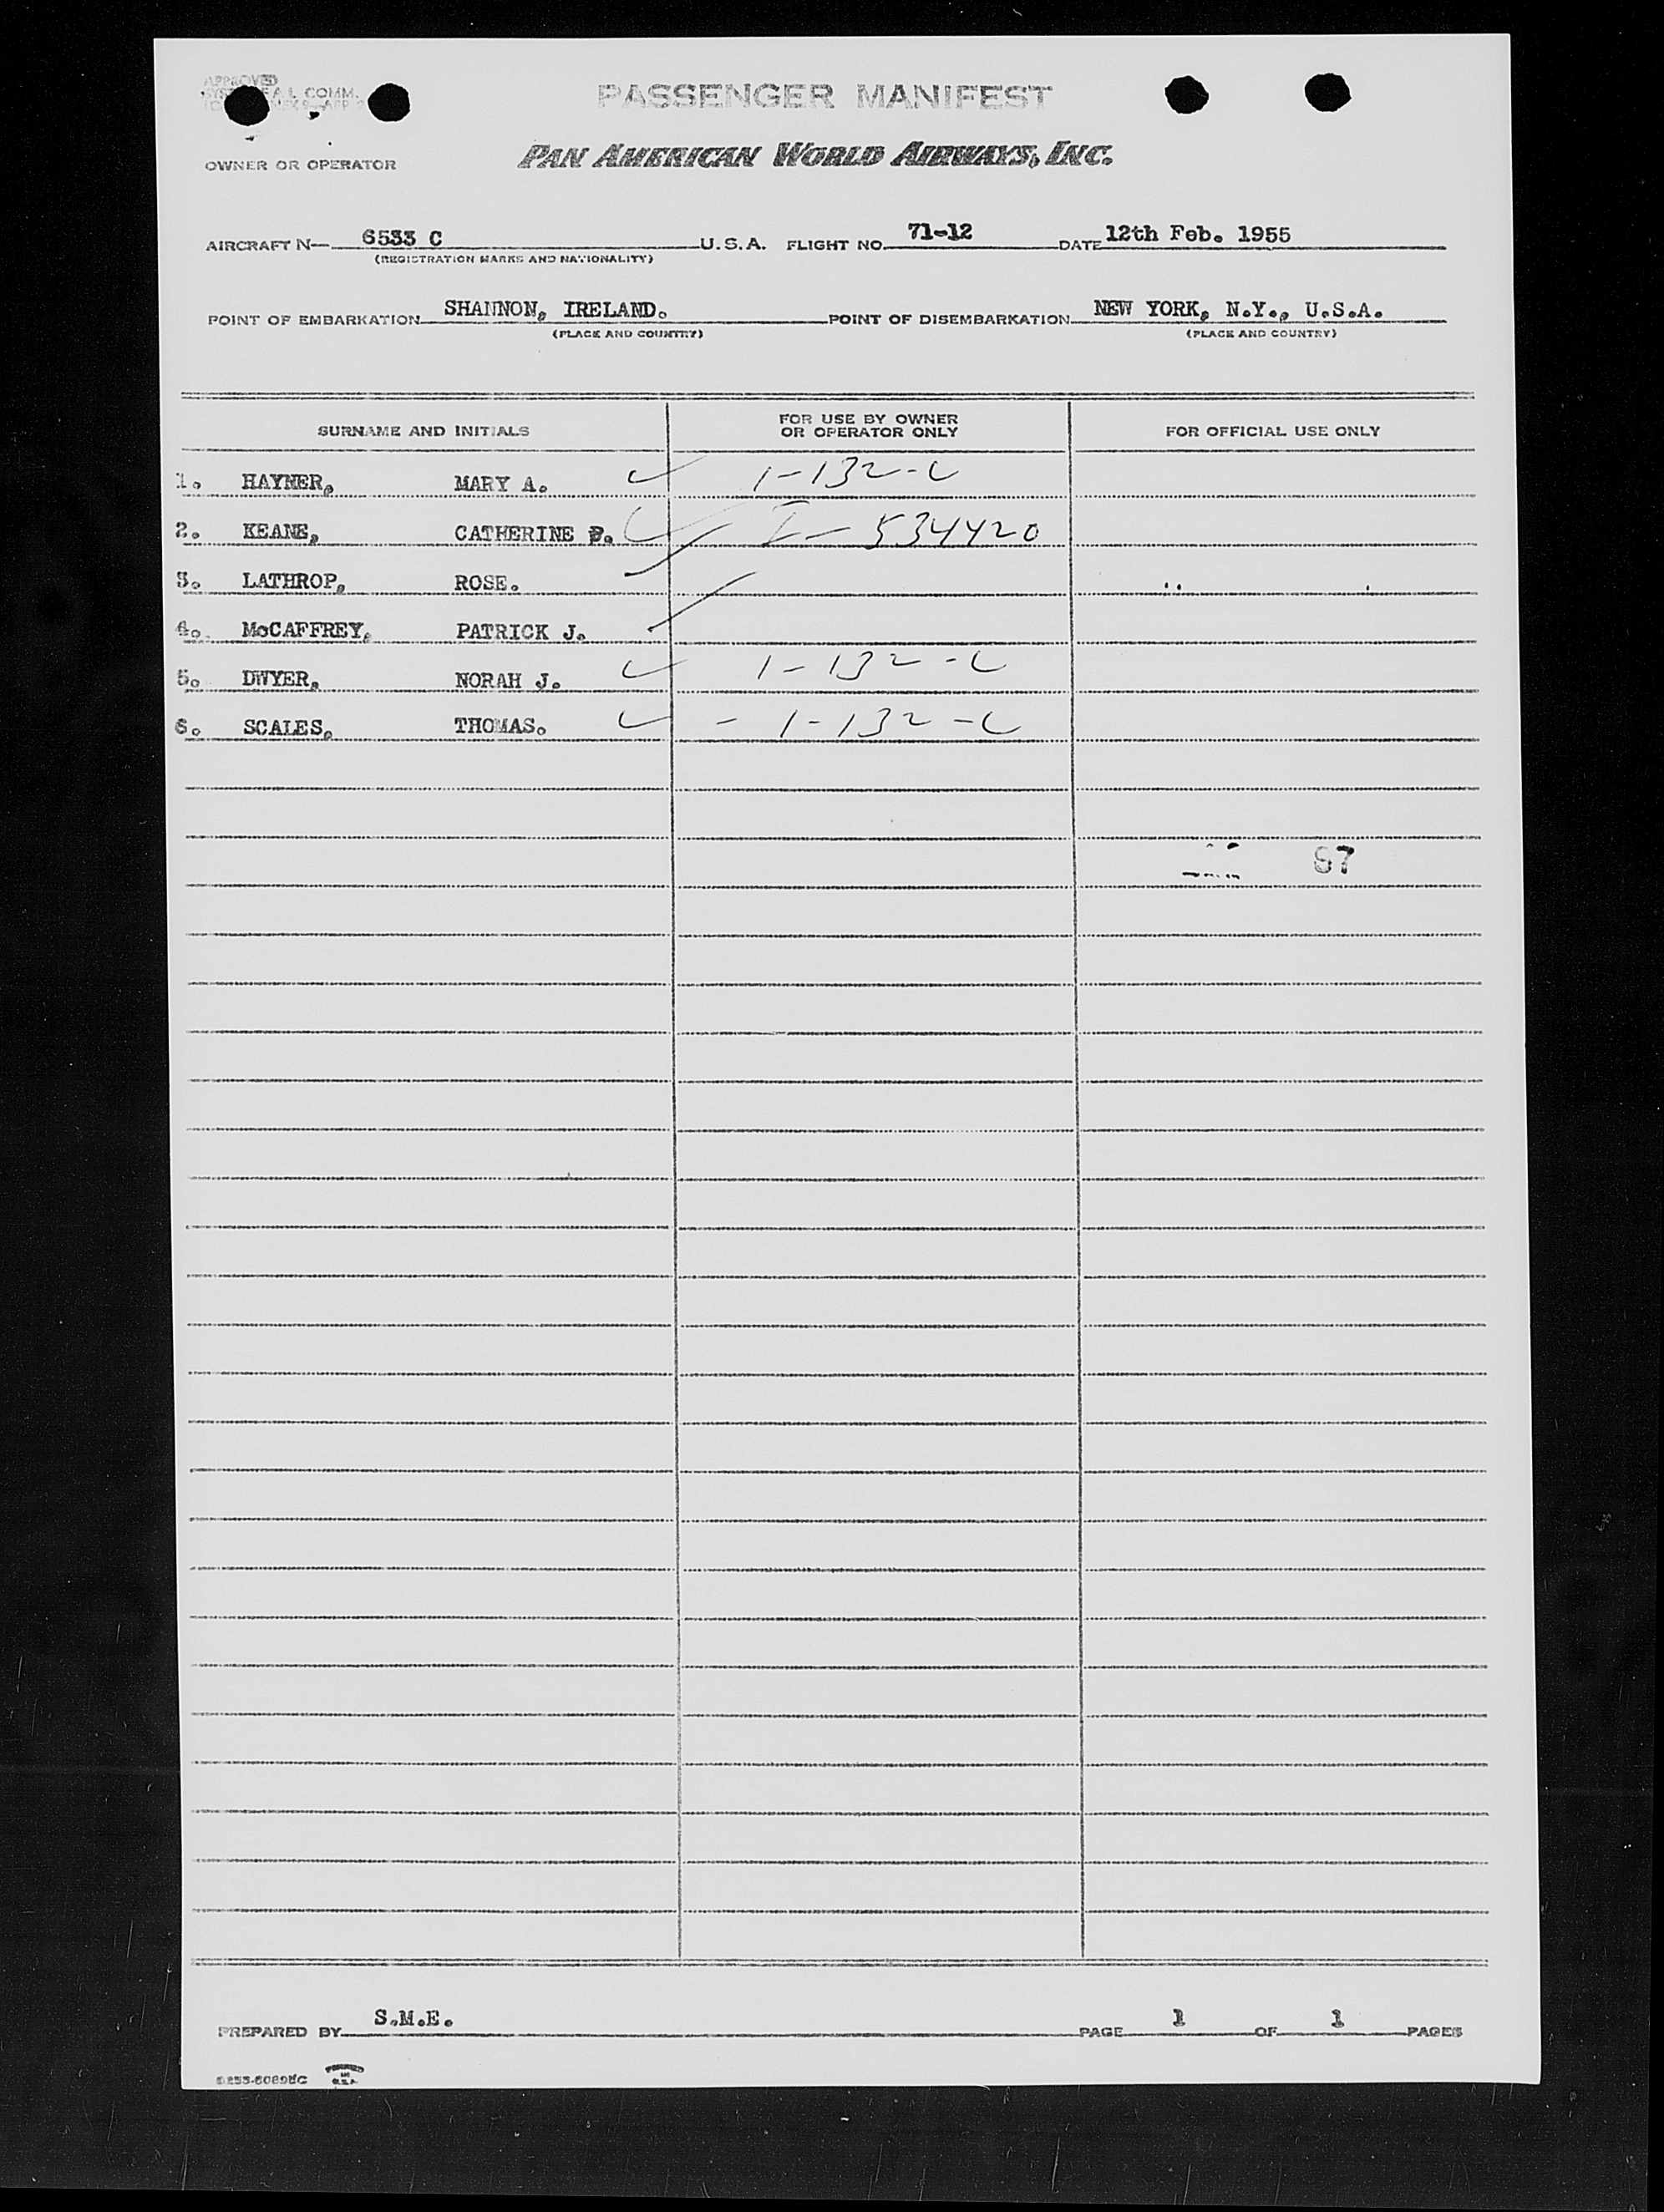 APPROVED
COMM.
PASSENGER MANIFEST
OWNER OR OPERATOR PAN AMERICAN WORLD AIRWAYS, INC.
AIRCRAFT N— 6533 C U.S.A. FLIGHT NO. 71-12 DATE 12th Feb. 1955
(REGISTRATION MARKS AND NATIONALITY)
POINT OF EMBARKATION SHANNON, IRELAND. POINT OF DISEMBARKATION NEW YORK, N.Y., U.S.A.
(PLACE AND COUNTRY) (PLACE AND COUNTRY)
SURNAME AND INITIALS FOR USE BY OWNER OR OPERATOR ONLY FOR OFFICIAL USE ONLY
1. HAYNER, MARY A. 1-132-C
2. KEANE, CATHERINE I-534420
3. LATHROP, ROSE.
4. McCAFFREY, PATRICK J.
5. DWYER, NORAH J. 1-132-C
6. SCALES, THOMAS. - 1-132-C
87
PREPARED BY S.M.E. PAGE 1 OF 1 PAGES
PRINTED IN U.S.A.